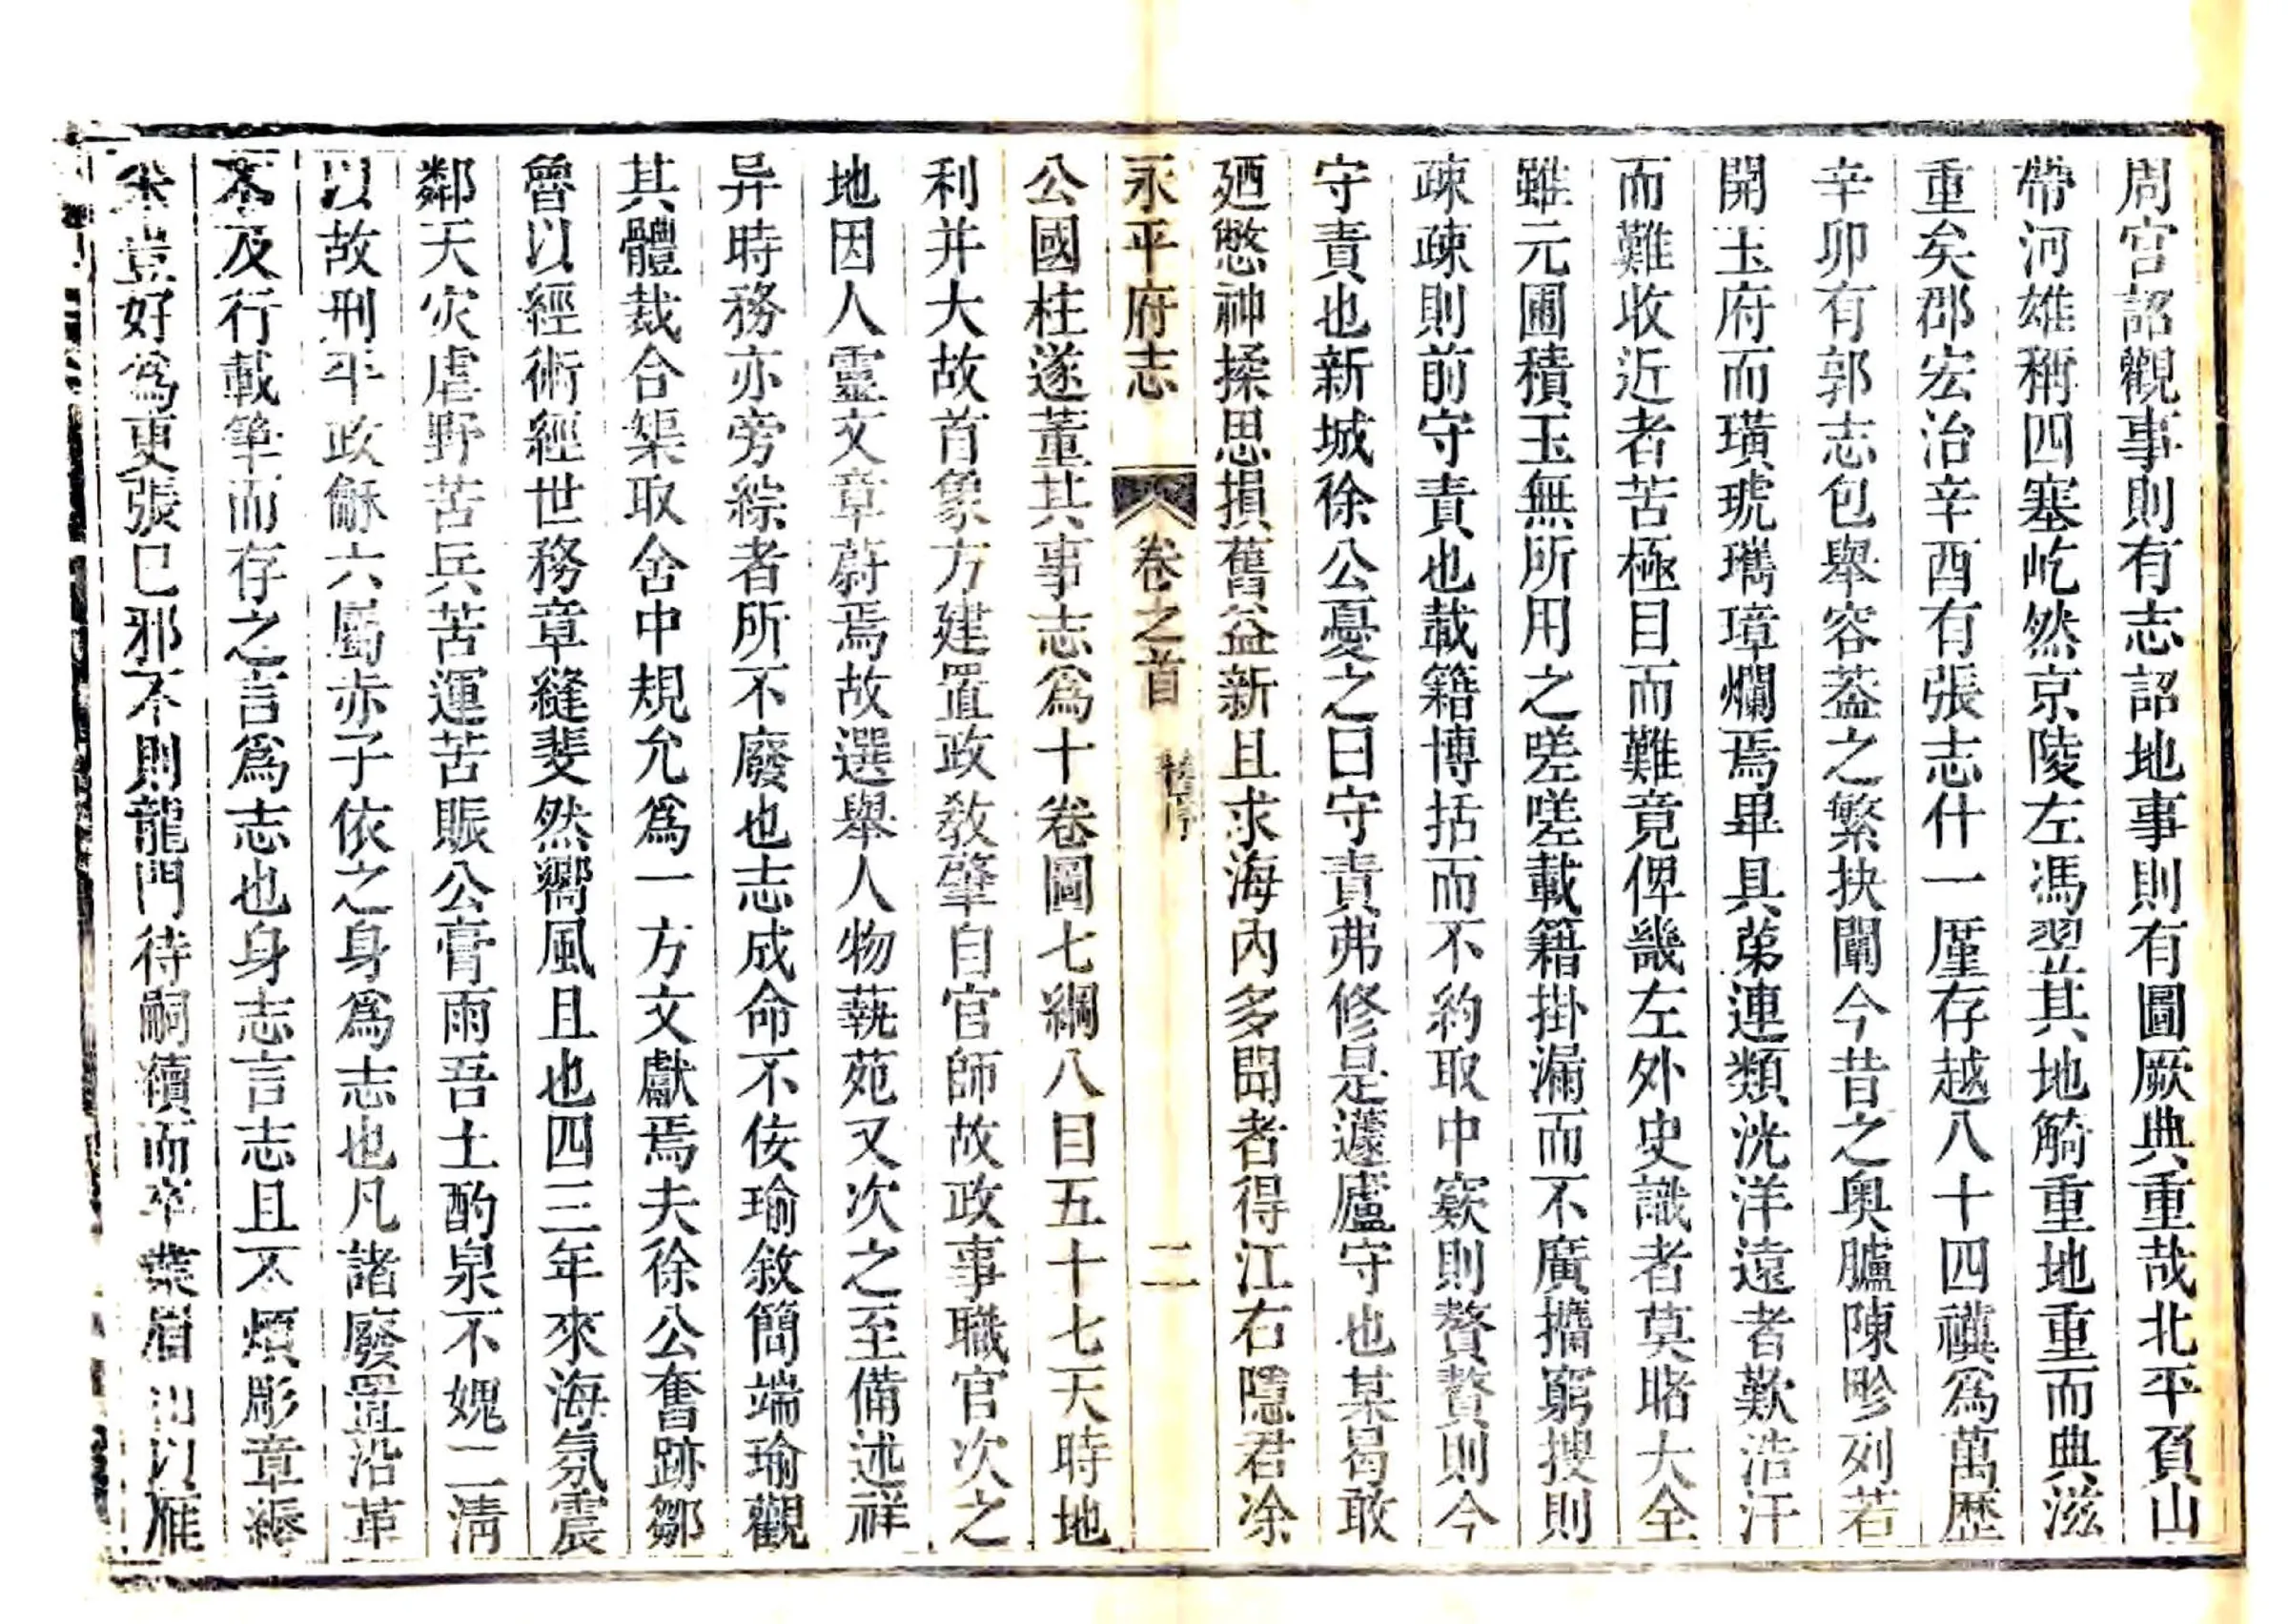 周官詔觀事則有志詔地事則有圖厥典重哉北平負山
帶河雄稱四塞屹然京陵左馮翌其地觭重地重而典滋
重矣郡宏治辛酉有張志什一厪存越八十四禩為萬歷
辛卯有郭志包舉容葢之繁抉闡今昔之奧臚陳畛列若
開玉府而璜琥瓗璋爛焉畢具苐連類洸洋遠者歎浩汗
而難收近者苦極目而難竟俾畿左外史識者莫睹大全
雖元圃積玉無所用之嗟嗟載籍掛漏而不廣攟窮搜則
疎疎則前守責也載籍博括而不約取中窾則贅贅則今
守責也新城徐公憂之曰守責弗修是蘧廬守也某曷敢
廼憋神揉思損舊益新且求海內多聞者得江右隱君涂
永平府志
卷之首
舊序
二
公國柱遂董其事志為十卷圖七綱八目五十七天時地
利并大故首象方建置政敎肇自官師故政事職官次之
地因人靈文章蔚焉故選舉人物蓺苑又次之至備述祥
异時務亦旁綜者所不廢也志成命不佞瑜敘簡端瑜觀
其體裁合榘取舍中規允為一方文獻焉夫徐公奮跡鄒
魯以經術經世務章縫斐然嚮風且也四三年來海氛震
鄰天灾虐野苦兵苦運苦賑公膏雨吾土酌泉不媿二淸
以故刑平政龢六屬赤子依之身為志也凡諸廢置沿革
不及行載筆而存之言為志也身志言志且不煩彫章縟
采豈好為更張巳邪不則龍門待嗣續而卒業眉以雁